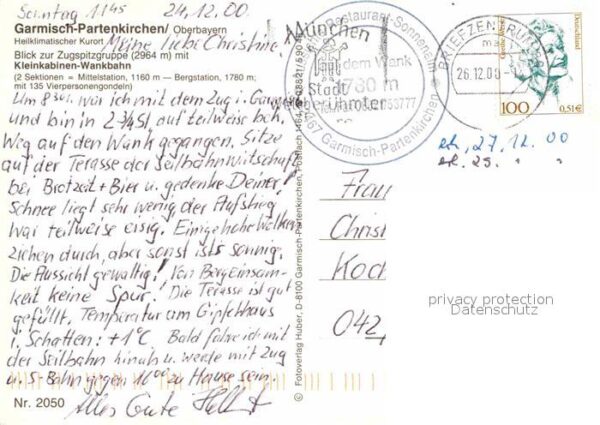 Sonntag 11 45 24.12.00.
Garmisch-Partenkirchen/ Oberbayern
Heilklimatischer Kurort
Meine liebe Christine!
Blick zur Zugspitzgruppe (2964 m) mit
Kleinkabinen-Wankbahn
(2 Sektionen = Mittelstation, 1160 m — Bergstation, 1780 m;
mit 135 Vierpersonengondeln)
Um 8 30 war ich mit dem Zug i. Garmisch
und bin in 2 3/4 St, auf teilweise
Weg auf den Wank gegangen. Sitze
auf der Terasse der Seilbahnwirtschaft
bei Brotzeit + Bier u. gedenke Deiner!
Schnee liegt sehr wenig, der Aufstieg
war teilweise eisig. Einige hohe Wolken
ziehen durch, aber sonst ists sonnig.
Die Aussicht gewaltig! Von Bergeinsam-
keit keine Spur! Die Terasse ist gut
gefüllt. Temperatur am Gipfelhaus
i. Schatten: +1°C. Bald fahre ich mit
der Seilbahn hinab u. werde mit Zug
u. S-Bahn gegen 16 00 zu Hause sein.
Alles Gute
Nr. 2050
© Fotoverlag Huber, D-8100 Garmisch-Partenkirchen, Postfach
München
Stadt
berühmter
Restaurant-Sonnenalm
dem Wank
1780 m
82467 Garmisch-Partenkirchen
BRIEFZENTRUM
26.12.00
Deutschland
100
0,51€
27.12.00
Frau
Christ
Koch
042
privacy protection
Datenschutz